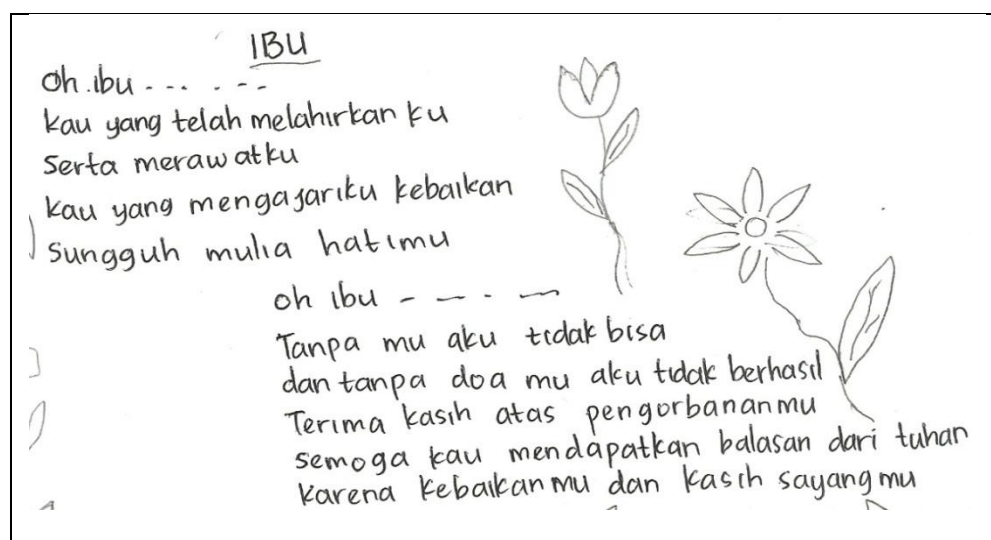 IBU
Oh ibu - - - - - -
Kau yang telah melahirkan ku
Serta merawatku
Kau yang mengajariku kebaikan
Sungguh mulia hatimu
Oh ibu - - - -
Tanpa mu aku tidak bisa
dan tanpa doa mu aku tidak berhasil
Terima kasih atas pengorbananmu
semoga kau mendapatkan balasan dari tuhan
Karena kebaikan mu dan kasih sayang mu